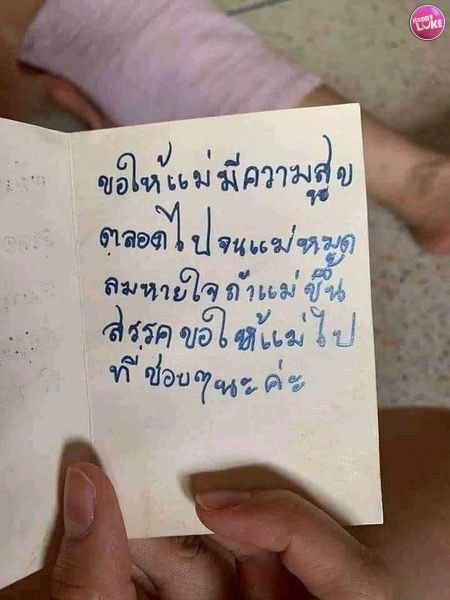 HAPPY LUKE
ขอให้แม่มีความสูข
ตลอดไปจนแม่หมด
ลมหายใจถ้าแม่ขึ้น
สรรคขอให้แม่ไป
ที่ช่อบๆนะค่ะ